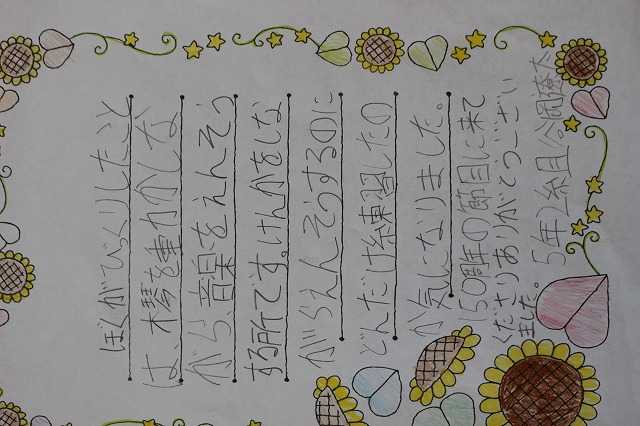 ぼくがびっくりしたこと
は、木琴を動かしな
がら、音楽をえんそう
する所です。けんかをしな
がらえんそうするのに
どんだけ練習したの
か気になりました。
150周年の節目に来て
くださりありがとうござい
ました。 5年2組